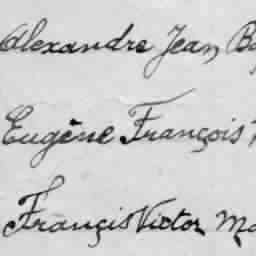 Alexandre Jean
Eugène François
Françis Victor